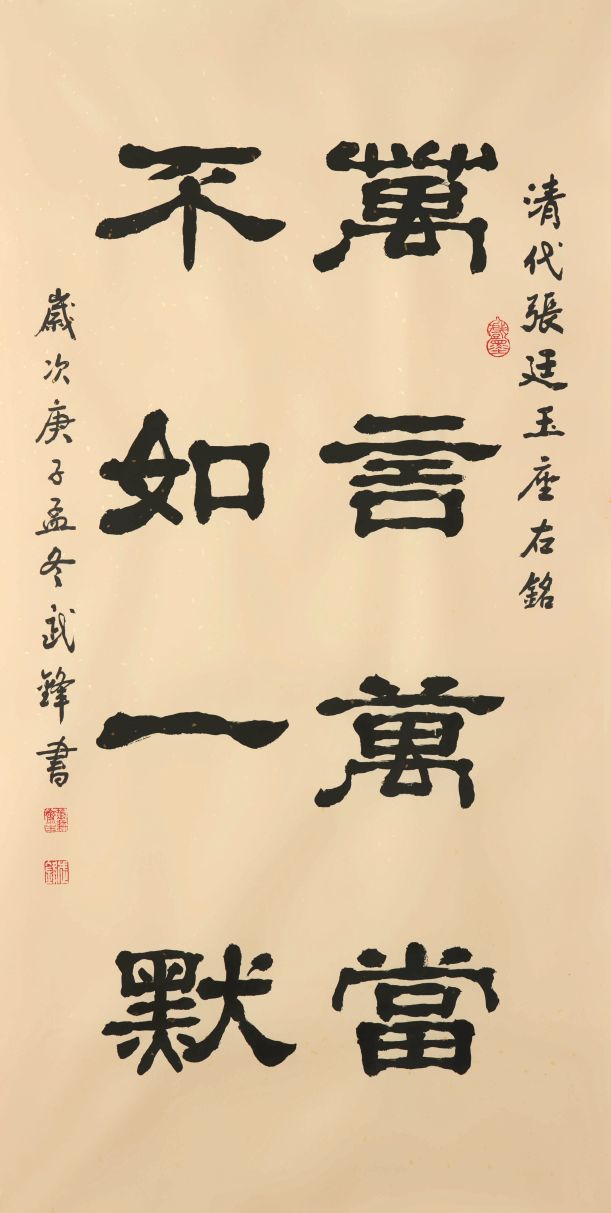 清代張廷玉座右銘
萬言萬當
不如一默
歲次庚子孟冬武鋒書